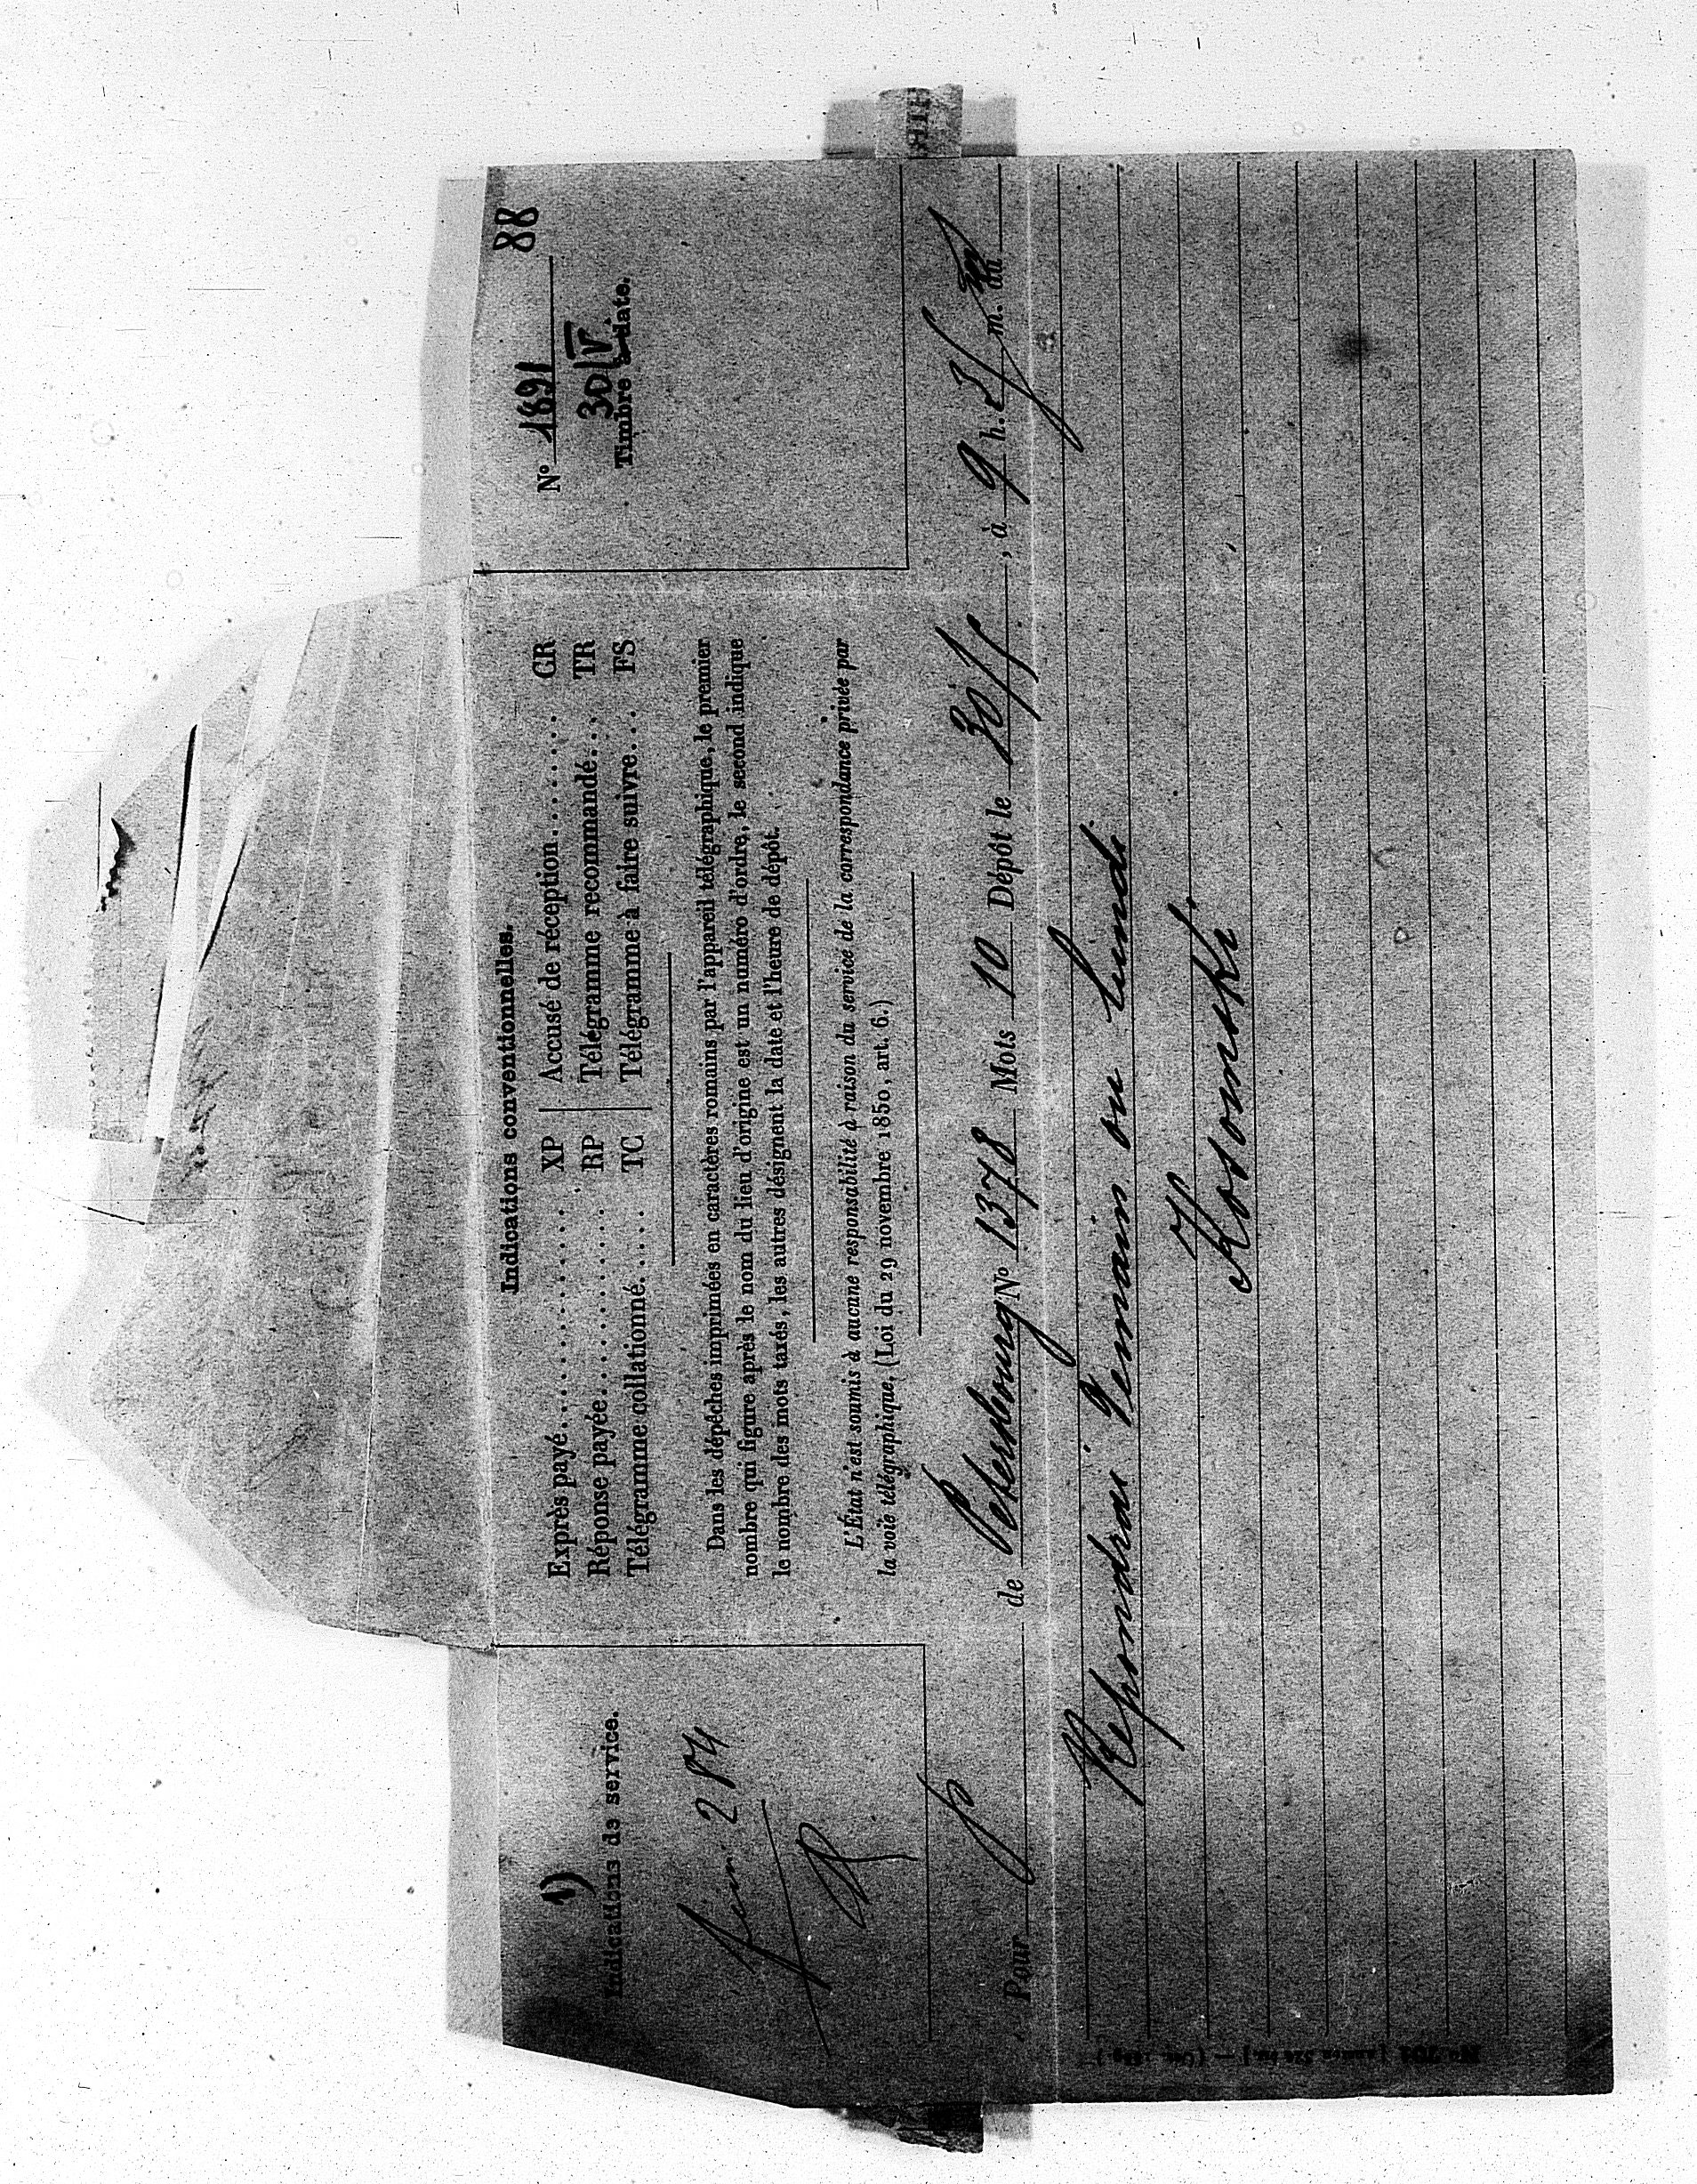 88
N° 1891
30/V
Timbre à date.
1)
Indications de service.
284
Indications conventionnelles.
Exprès payé.................. XP | Accusé de réception......... CR
Réponse payée............... RP | Télégramme recommandé... TR
Télégramme collationné..... TC | Télégramme à faire suivre... FS
Dans les dépêches imprimées en caractères romains par l'appareil télégraphique, le premier
nombre qui figure après le nom du lieu d'origine est un numéro d'ordre, le second indique
le nombre des mots taxés, les autres désignent la date et l'heure de dépôt.
L'État n'est soumis à aucune responsabilité à raison du service de la correspondance privée par
la voie télégraphique. (Loi du 29 novembre 1850, art. 6.)
Pour p de Petersbourg N° 1378 Mots 10 Dépôt le 30/, à 9 h. m. du
Repondrai demain ou lundi
Kosomski